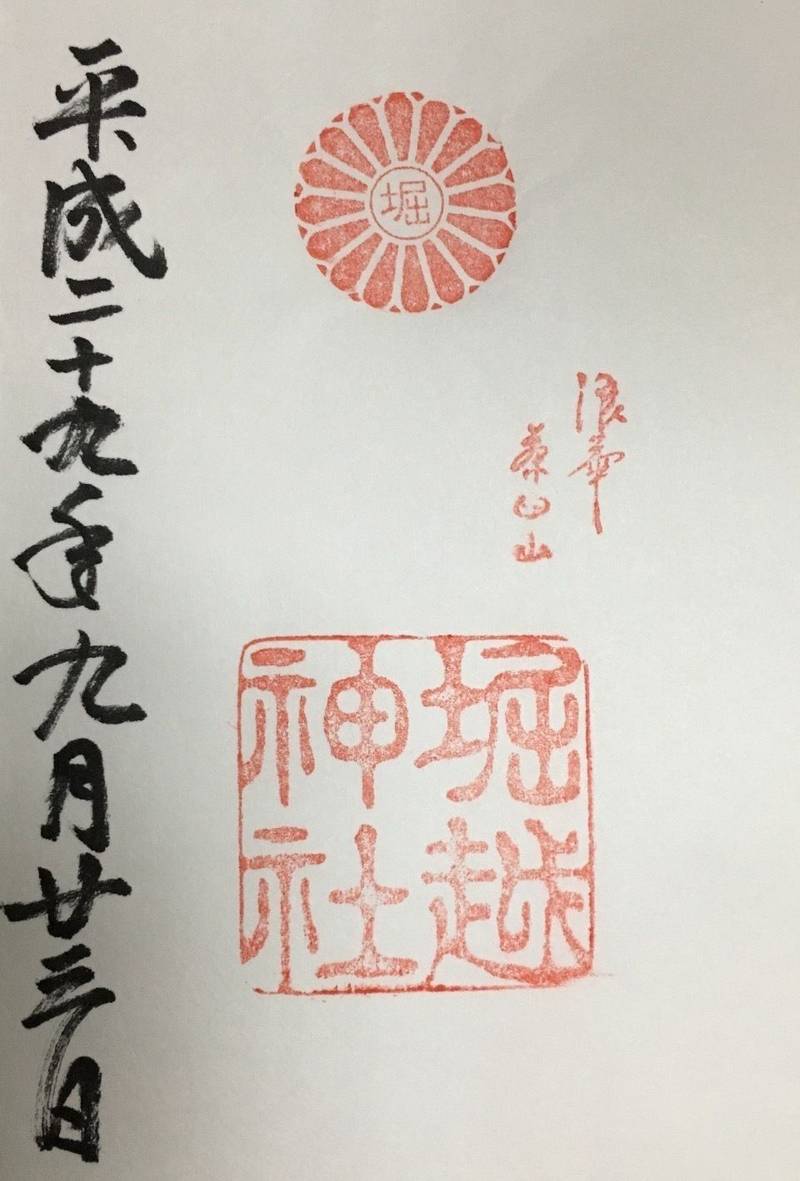 堀
浪華
茶臼山
堀越
神社
平成二十九年九月廿三日